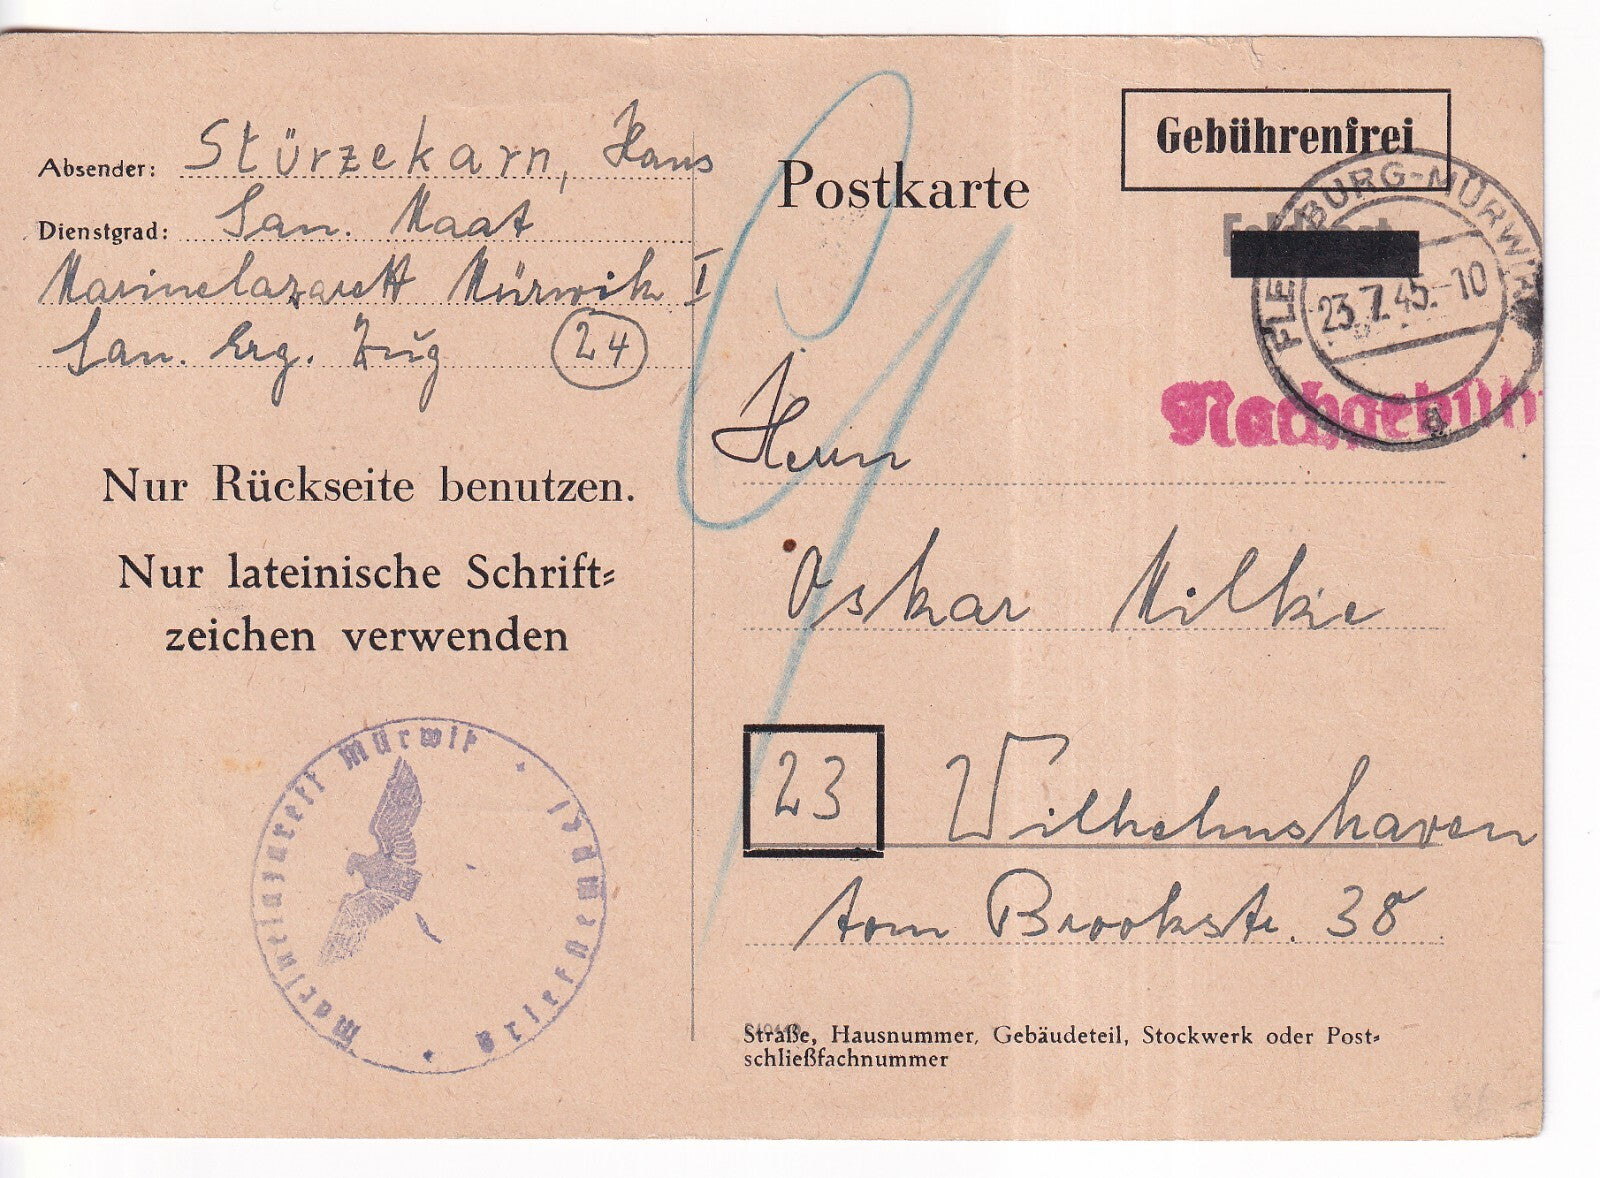 Absender: Stürzekarn, Hans
Dienstgrad: San. Maat
Marinelazarett Mürwik I
San. Erg. Zug 24
Nur Rückseite benutzen.
Nur lateinische Schrift=
zeichen verwenden
Marinelazarett Mürwik
Briefstempel
Postkarte
Gebührenfrei
FLENSBURG-MÜRWIK
23.7.45.-10
g
Nachgebühr
9
Herrn
Oskar Milke
23 Wilhelmshaven
tom Brookstr. 38
Straße, Hausnummer, Gebäudeteil, Stockwerk oder Post=
schließfachnummer